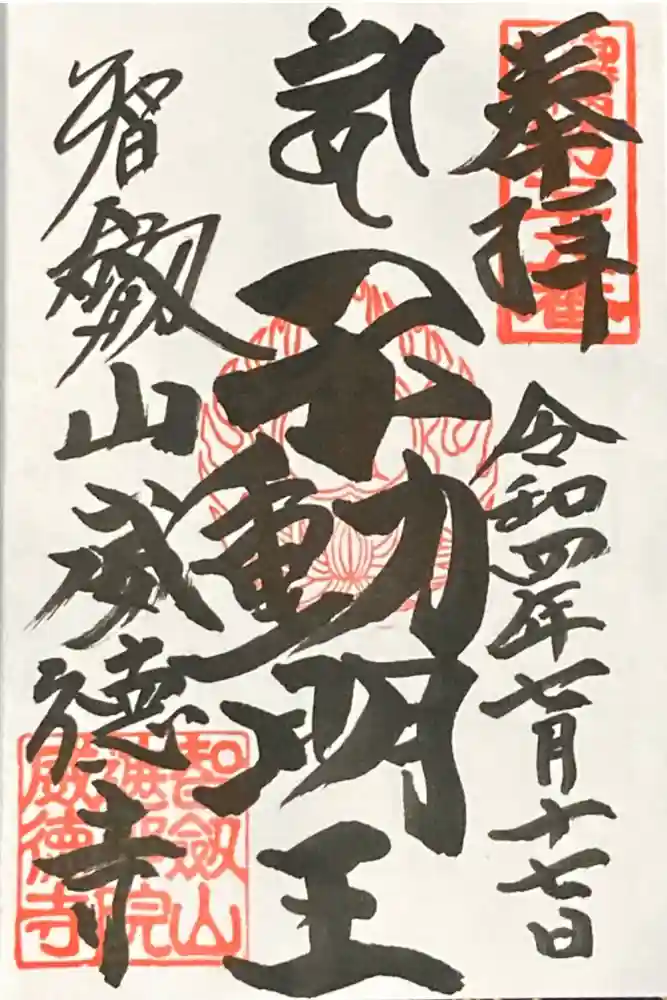 奉拝
令和四年七月十七日
不動明王
智劔山威徳寺
智劔山
院
威徳寺